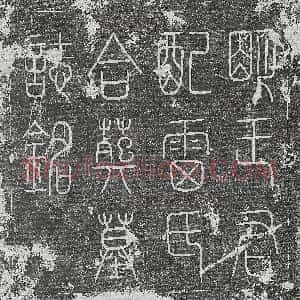 明王君
配雷氏
合葬墓
誌銘